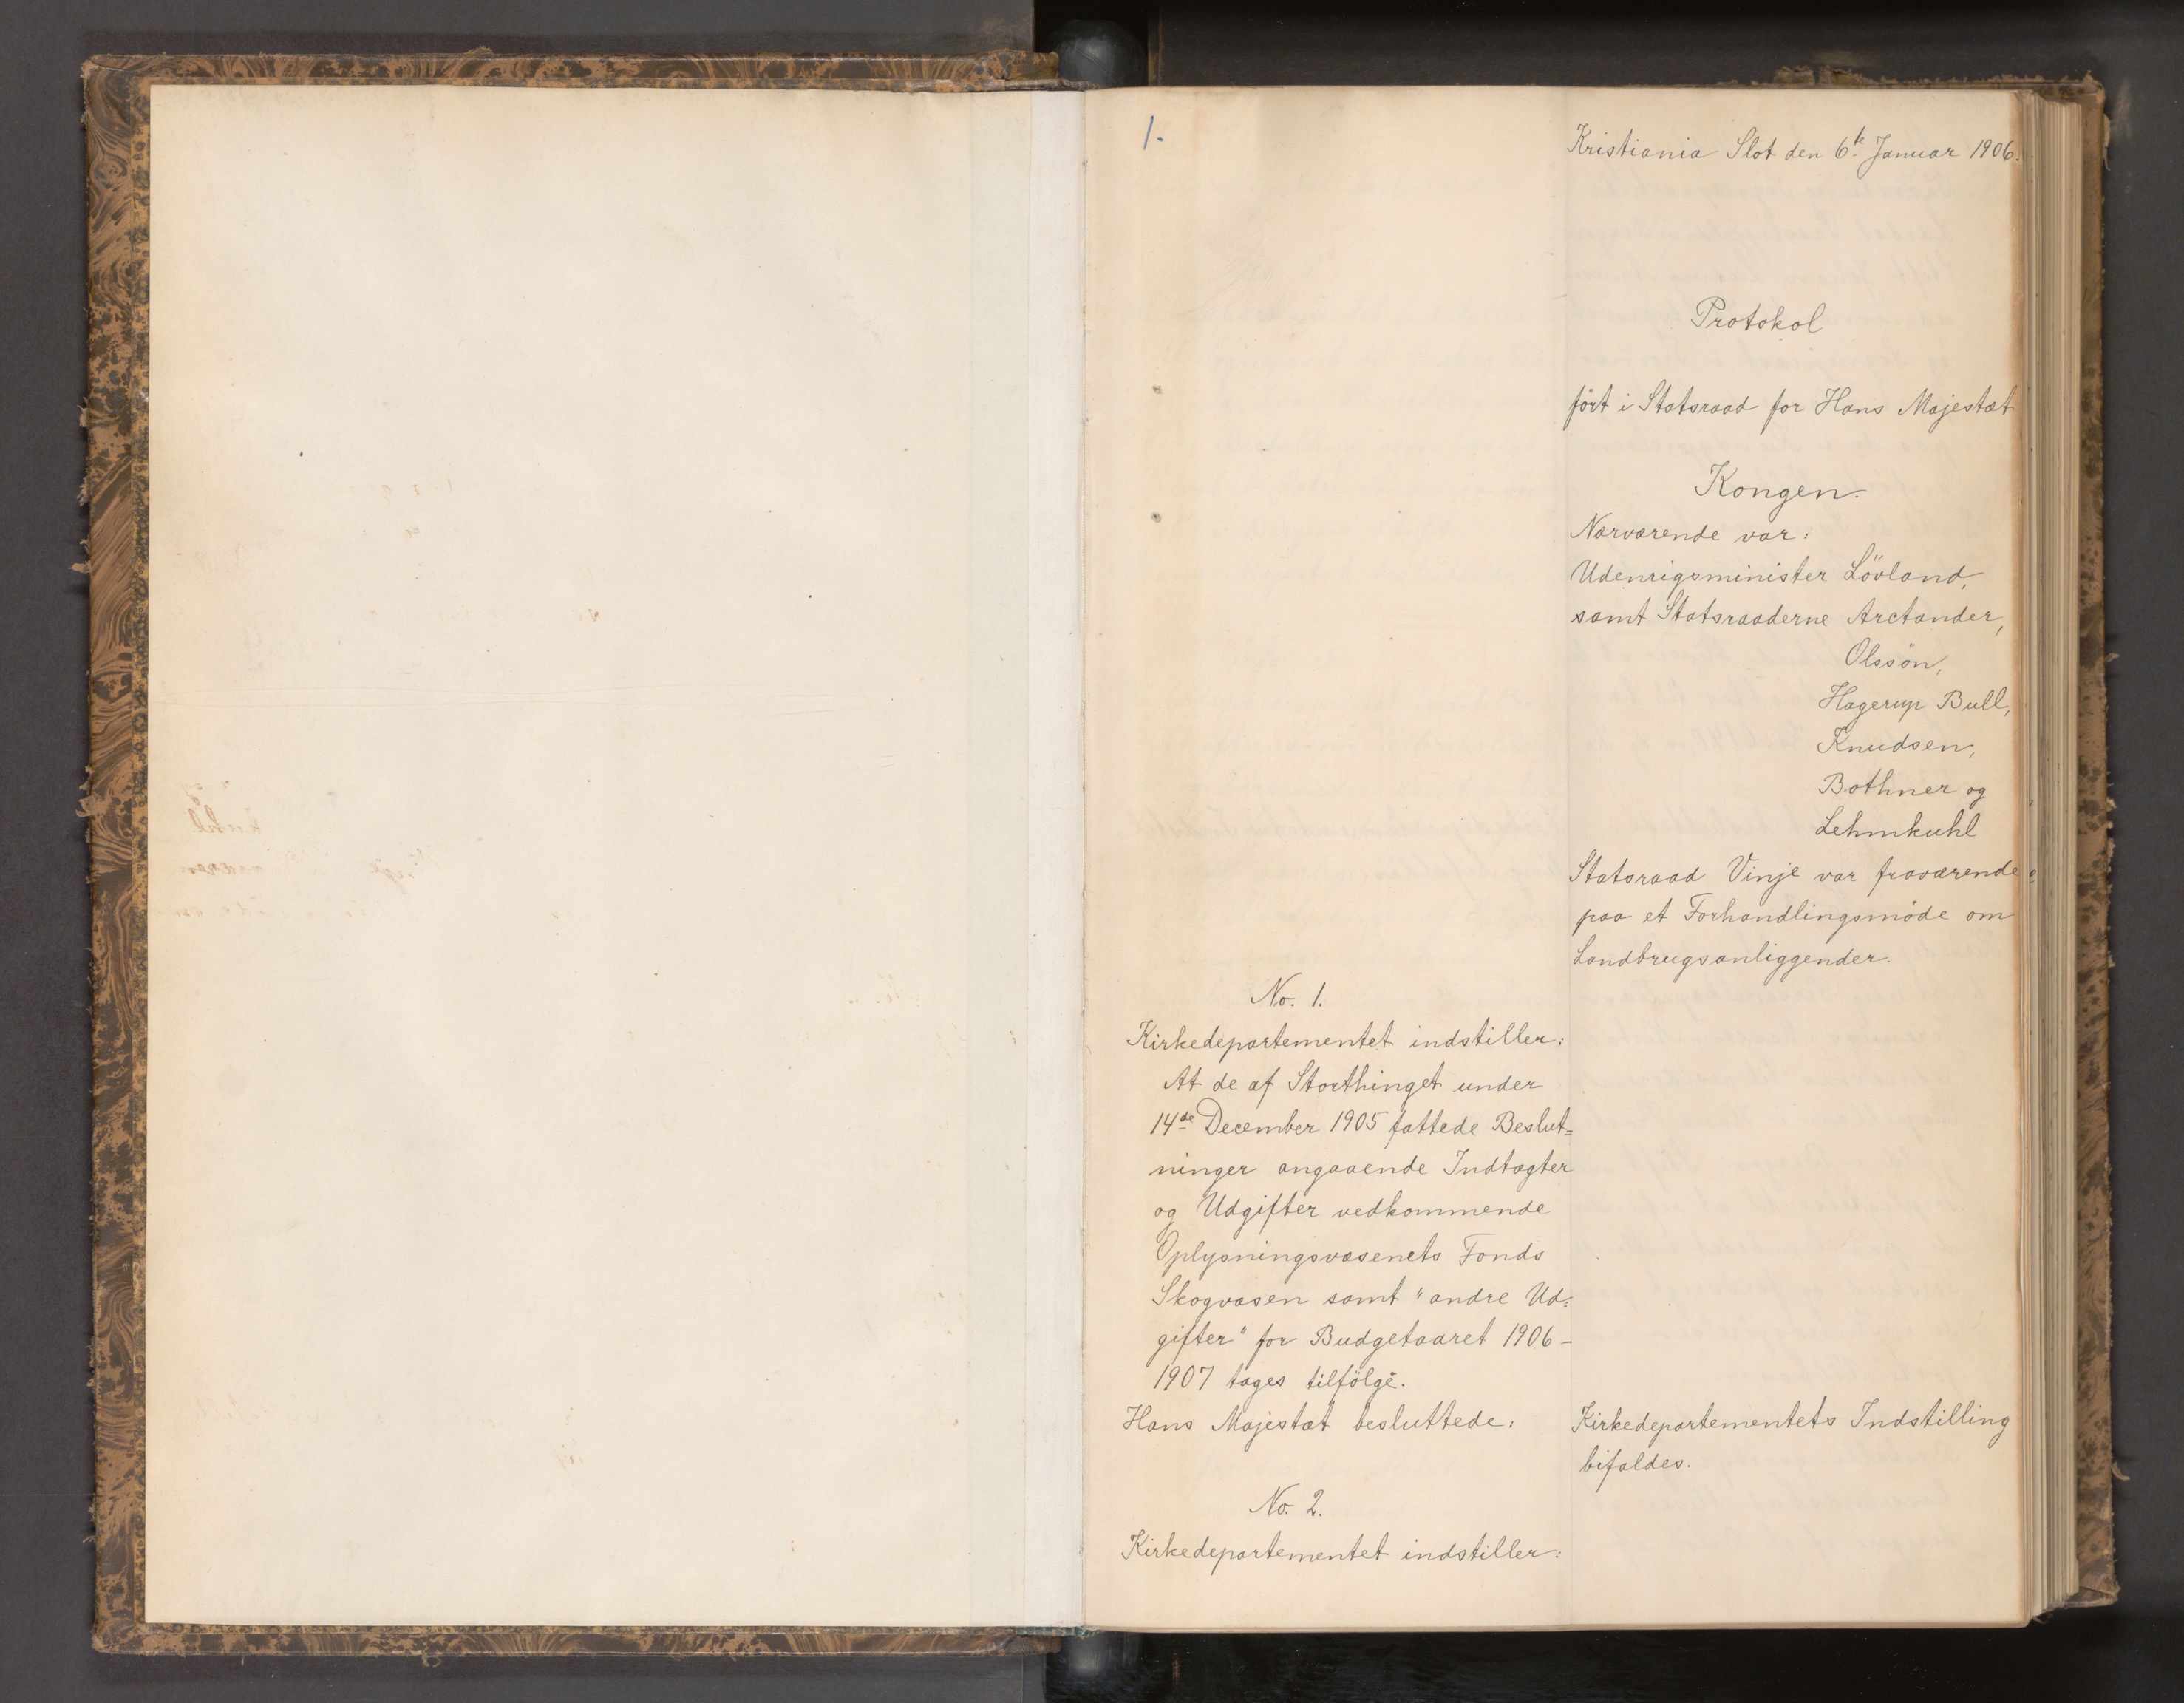 1.
Kristiania Slot den 6te Januar 1906.
Protokol
ført i Statsraad for Hans Majestæt
Kongen.
Nærværende var:
Udenrigsminister Lövland,
samt Statsraaderne Arctander,
Olssön,
Hagerup Bull,
Knudsen,
Bothner og
Lehmkuhl
Statsraad Vinje var fraværende
paa et Forhandlingsmöde om
Landbrugsanliggender.
No. 1.
Kirkedepartementet indstiller:
At de af Storthinget under
14de December 1905 fattede Beslut=
ninger angaaende Indtægter
og Udgifter vedkommende
Oplysningsvæsenets Fonds
Skogvæsen samt "andre Ud=
gifter" for Budgetaaret 1906–
1907 tages tilfölge.
Hans Majestæt besluttede:
Kirkedepartementets Indstilling
bifaldes.
No. 2.
Kirkedepartementet indstiller: